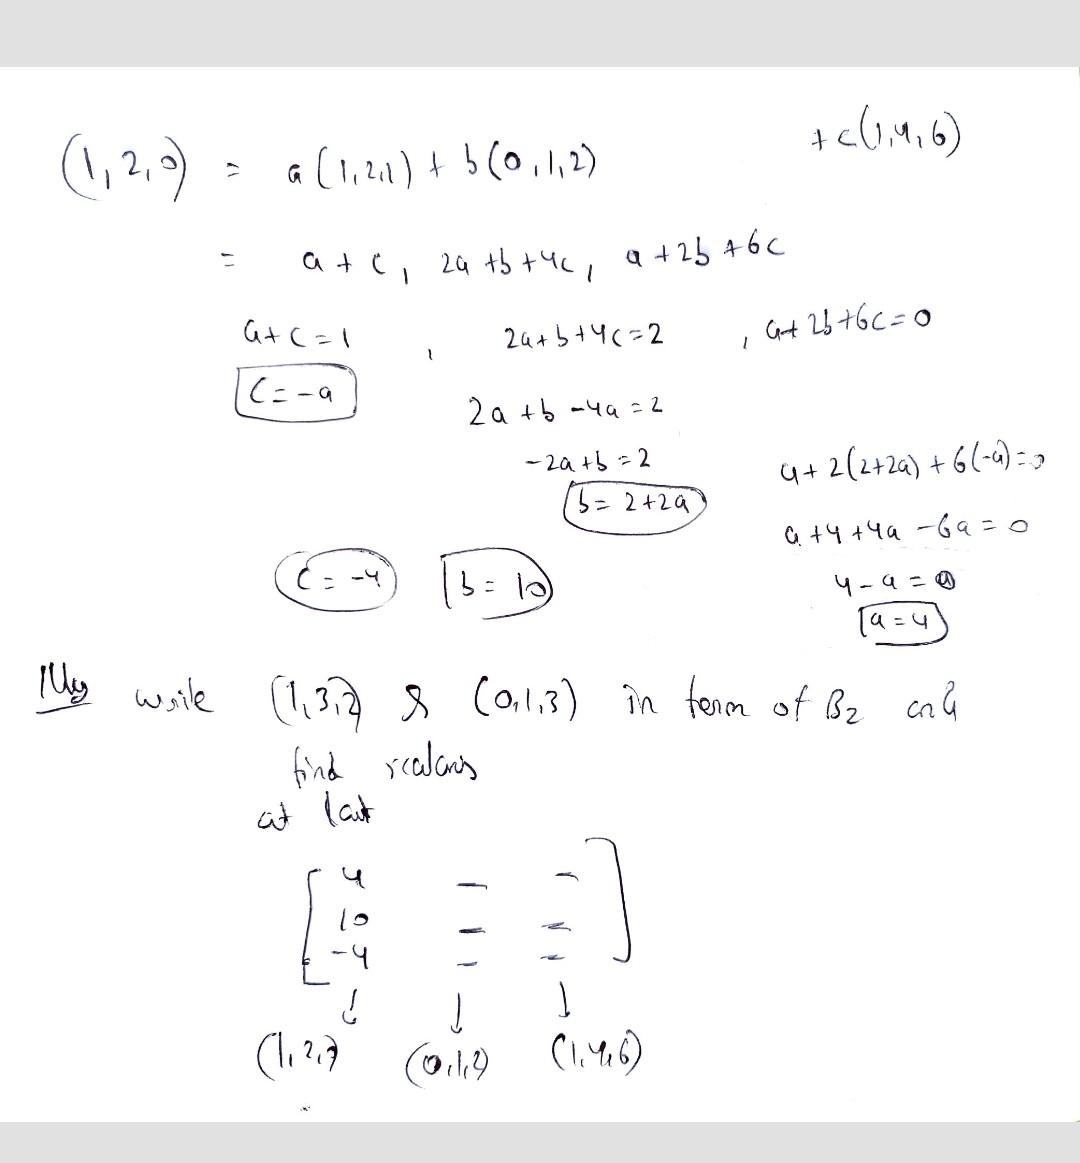 (1,2,0) = a(1,2,1) + b(0,1,2) + c(1,4,6)
= a + c, 2a + b + 4c, a + 2b + 6c
a + c = 1 , 2a + b + 4c = 2 , a + 2b + 6c = 0
c = -a
2a + b - 4a = 2
-2a + b = 2
a + 2(2+2a) + 6(-a) = 0
b = 2+2a
a + 4 + 4a - 6a = 0
c = -4 b = 10
4 - a = 0
a = 4
Illy write (1,3,2) & (0,1,3) in term of B2 and
find scalars
at last
[ 4 - - ]
10 - =
-4 - -
↓ ↓ ↓
(1,2,1) (0,1,2) (1,4,6)